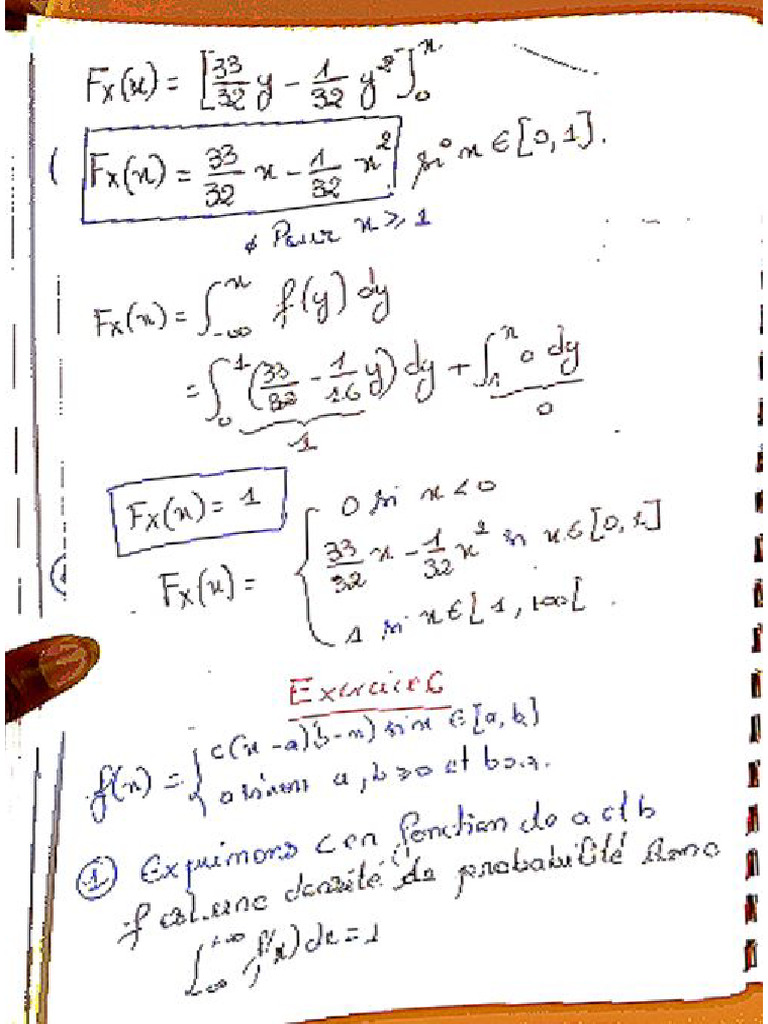 Fx(x) = [33/32 y - 1/32 y²]₀ˣ
Fx(x) = 33/32 x - 1/32 x² si x ∈ [0,1].
Pour x ≥ 1
Fx(x) = ∫₋∞ˣ f(y) dy
= ∫₀¹ (33/32 - 1/16 y) dy + ∫₁ˣ 0 dy
1 0
Fx(x) = 1
Fx(x) = { 0 si x < 0
33/32 x - 1/32 x² si x ∈ [0,1]
1 si x ∈ [1, +∞[
Exercice 6
f(x) = { c(x-a)(b-x) si x ∈ [a,b]
0 sinon a,b > 0 et b > a.
① Exprimons c en fonction de a et b
f est une densité de probabilité donc
∫₋∞⁺∞ f(x) dx = 1